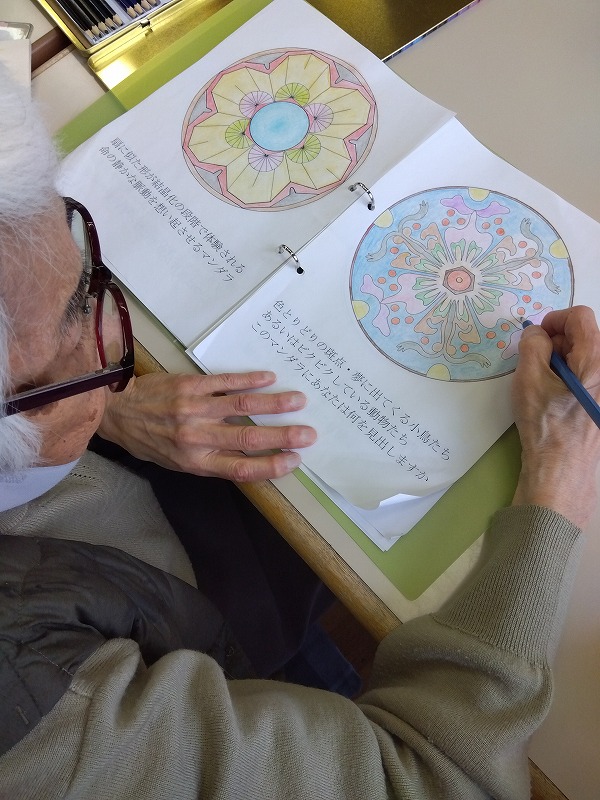 扇に似た形が結晶化の段階で体験される
命の静かな脈動を想い起させるマンダラ
色とりどりの斑点・夢に出てくる小鳥たち
あるいはピクピクしている動物たち
このマンダラにあなたは何を見出しますか